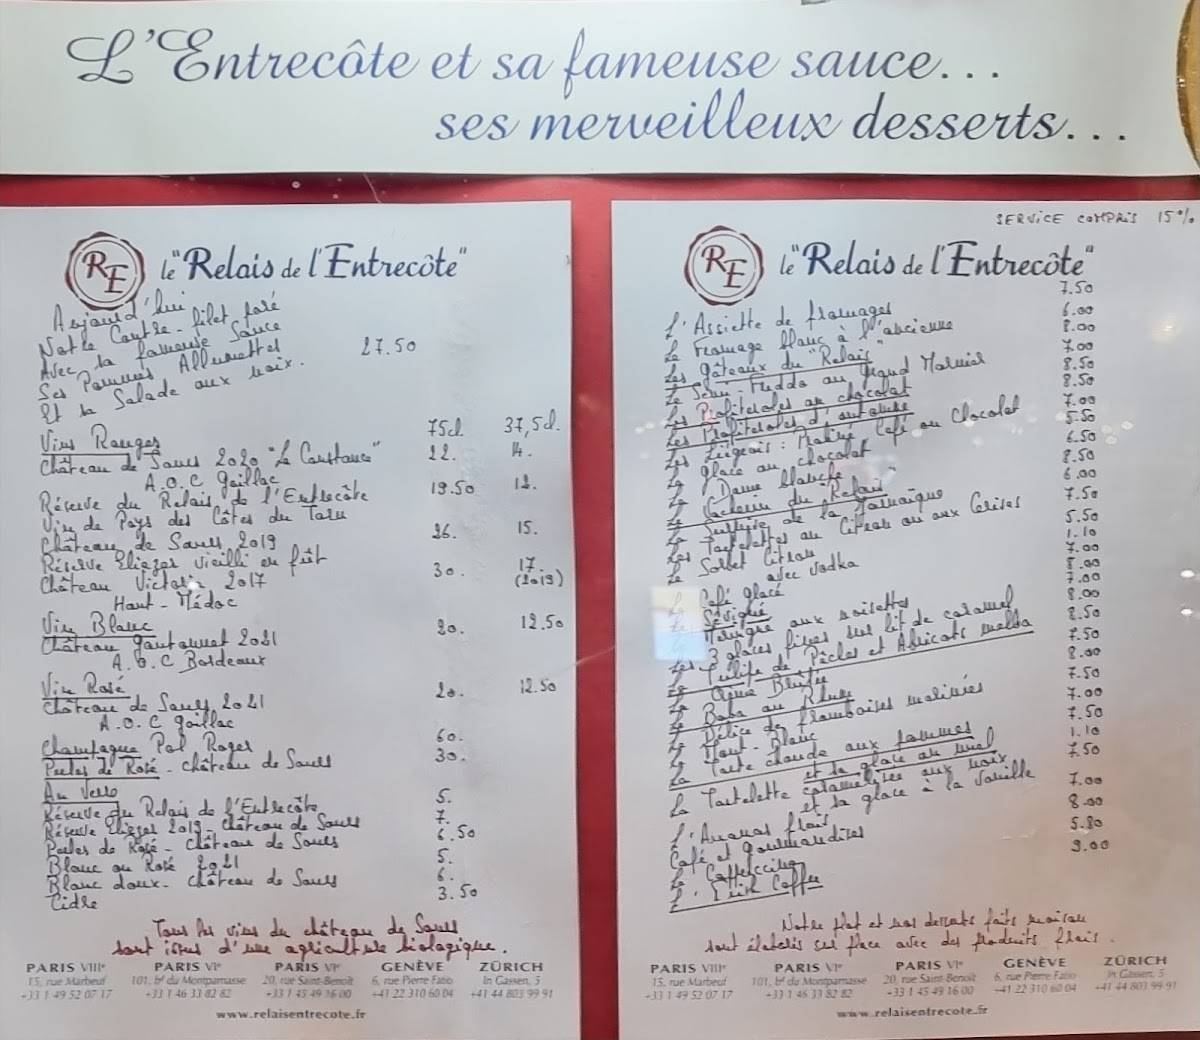 L'Entrecôte et sa fameuse sauce...
ses merveilleux desserts...
RE le "Relais de l'Entrecôte"
Aujourd'hui
Notre Contre-filet paré
Avec sa fameuse Sauce
Ses Pommes Allumettes
Et sa Salade aux noix. 27.50
75cl 37,5cl.
Vins Rouges
Château de Saurs 2020 "La Constance" 22. 14.
A.O.C Gaillac
Réserve du Relais de l'Entrecôte 19.50 12.
Vin de Pays des Côtes du Tarn
Château de Saurs 2019 26. 15.
Réserve Eliezer vieilli en fût
Château Victoria 2017 30. 17. (2019)
Haut-Médoc
Vin Blanc
Château 2021 20. 12.50
A.O.C Bordeaux
Vin Rosé
Château de Saurs 2021 20. 12.50
A.O.C Gaillac
Champagne Pol Roger 60.
Perles de Rosé - Château de Saurs 30.
Au Verre
Réserve du Relais de l'Entrecôte 5.
Réserve Eliezer 2019 - Château de Saurs 7.
Perles de Rosé - Château de Saurs 6.50
Blanc ou Rosé 2021 5.
Blanc doux - Château de Saurs 6.
Cidre 3.50
Tous les vins du château de Saurs
sont issus d'une agriculture biologique.
PARIS VIIIe PARIS VIe PARIS VIe GENÈVE ZÜRICH
15, rue Marbeuf 101, bd du Montparnasse 20, rue Saint-Benoît 6, rue Pierre Fatio In Gassen, 5
+33 1 49 52 07 17 +33 1 46 33 82 82 +33 1 45 49 16 00 +41 22 310 60 04 +41 44 803 99 91
www.relaisentrecote.fr
SERVICE COMPRIS 15%
RE le "Relais de l'Entrecôte"
L'Assiette de fromages 7.50
Le Fromage blanc à l'ancienne 6.00
Les gâteaux du "Relais" 8.00
Le Semi-Freddo au Grand Marnier 7.00
Les Profiteroles au chocolat 8.50
Les Profiteroles d'automne 8.50
Les Liégeois: Praliné Café ou Chocolat 7.00
La glace au chocolat 5.50
La Dame Blanche 6.50
Le Vacherin du "Relais" 8.50
La Surprise de la Jamaïque 6.00
Les Tartelettes au Citron ou aux Cerises 7.50
Le Sorbet Citron 5.50
avec vodka 1.10
Le Café glacé 7.00
Le Sévigné 8.00
La Meringue aux noisettes 7.00
Les 3 glaces fines sur lit de caramel 8.00
La Tulipe de Pêches et Abricots melba 8.50
La Crème Brûlée 7.50
Le Baba au Rhum 8.00
Le Délice de framboises meringuées 7.50
Le Mont-Blanc 7.00
La Tarte chaude aux pommes 7.50
et sa glace au miel 1.10
La Tartelette caramélisée aux noix 7.50
et sa glace à la vanille
L'Ananas frais 7.00
Café et Gourmandises 8.00
Le Cappuccino 5.80
L'Irish Coffee 9.00
Notre plat et nos desserts faits maison
sont élaborés sur place avec des produits frais.
PARIS VIIIe PARIS VIe PARIS VIe GENÈVE ZÜRICH
15, rue Marbeuf 101, bd du Montparnasse 20, rue Saint-Benoît 6, rue Pierre Fatio In Gassen, 5
+33 1 49 52 07 17 +33 1 46 33 82 82 +33 1 45 49 16 00 +41 22 310 60 04 +41 44 803 99 91
www.relaisentrecote.fr